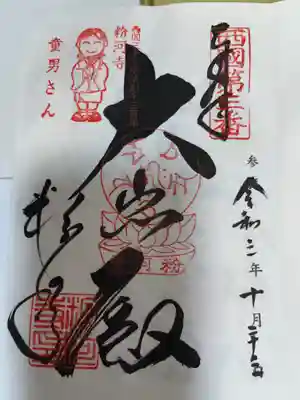 西國第三番
奉拝
令和二年十月二十五日
大悲殿
粉河寺
粉河寺
童男さん